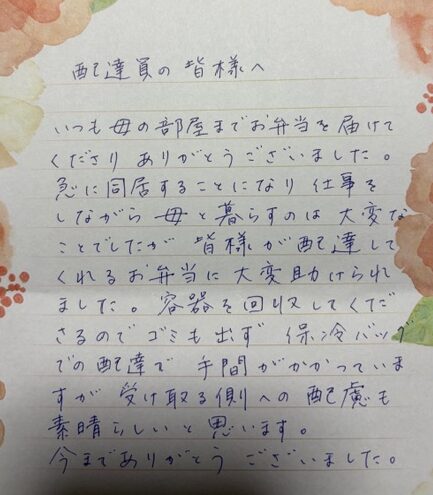 配達員の皆様へ
いつも母の部屋までお弁当を届けて
くださり ありがとうございました。
急に同居することになり 仕事を
しながら 母と暮らすのは 大変な
ことでしたが 皆様が配達して
くれるお弁当に大変助けられ
ました。容器を回収してくだ
さるので ゴミも出ず 保冷バッグ
での配達で 手間がかかっていま
すが 受け取る側への配慮も
素晴らしいと思います。
今までありがとうございました。